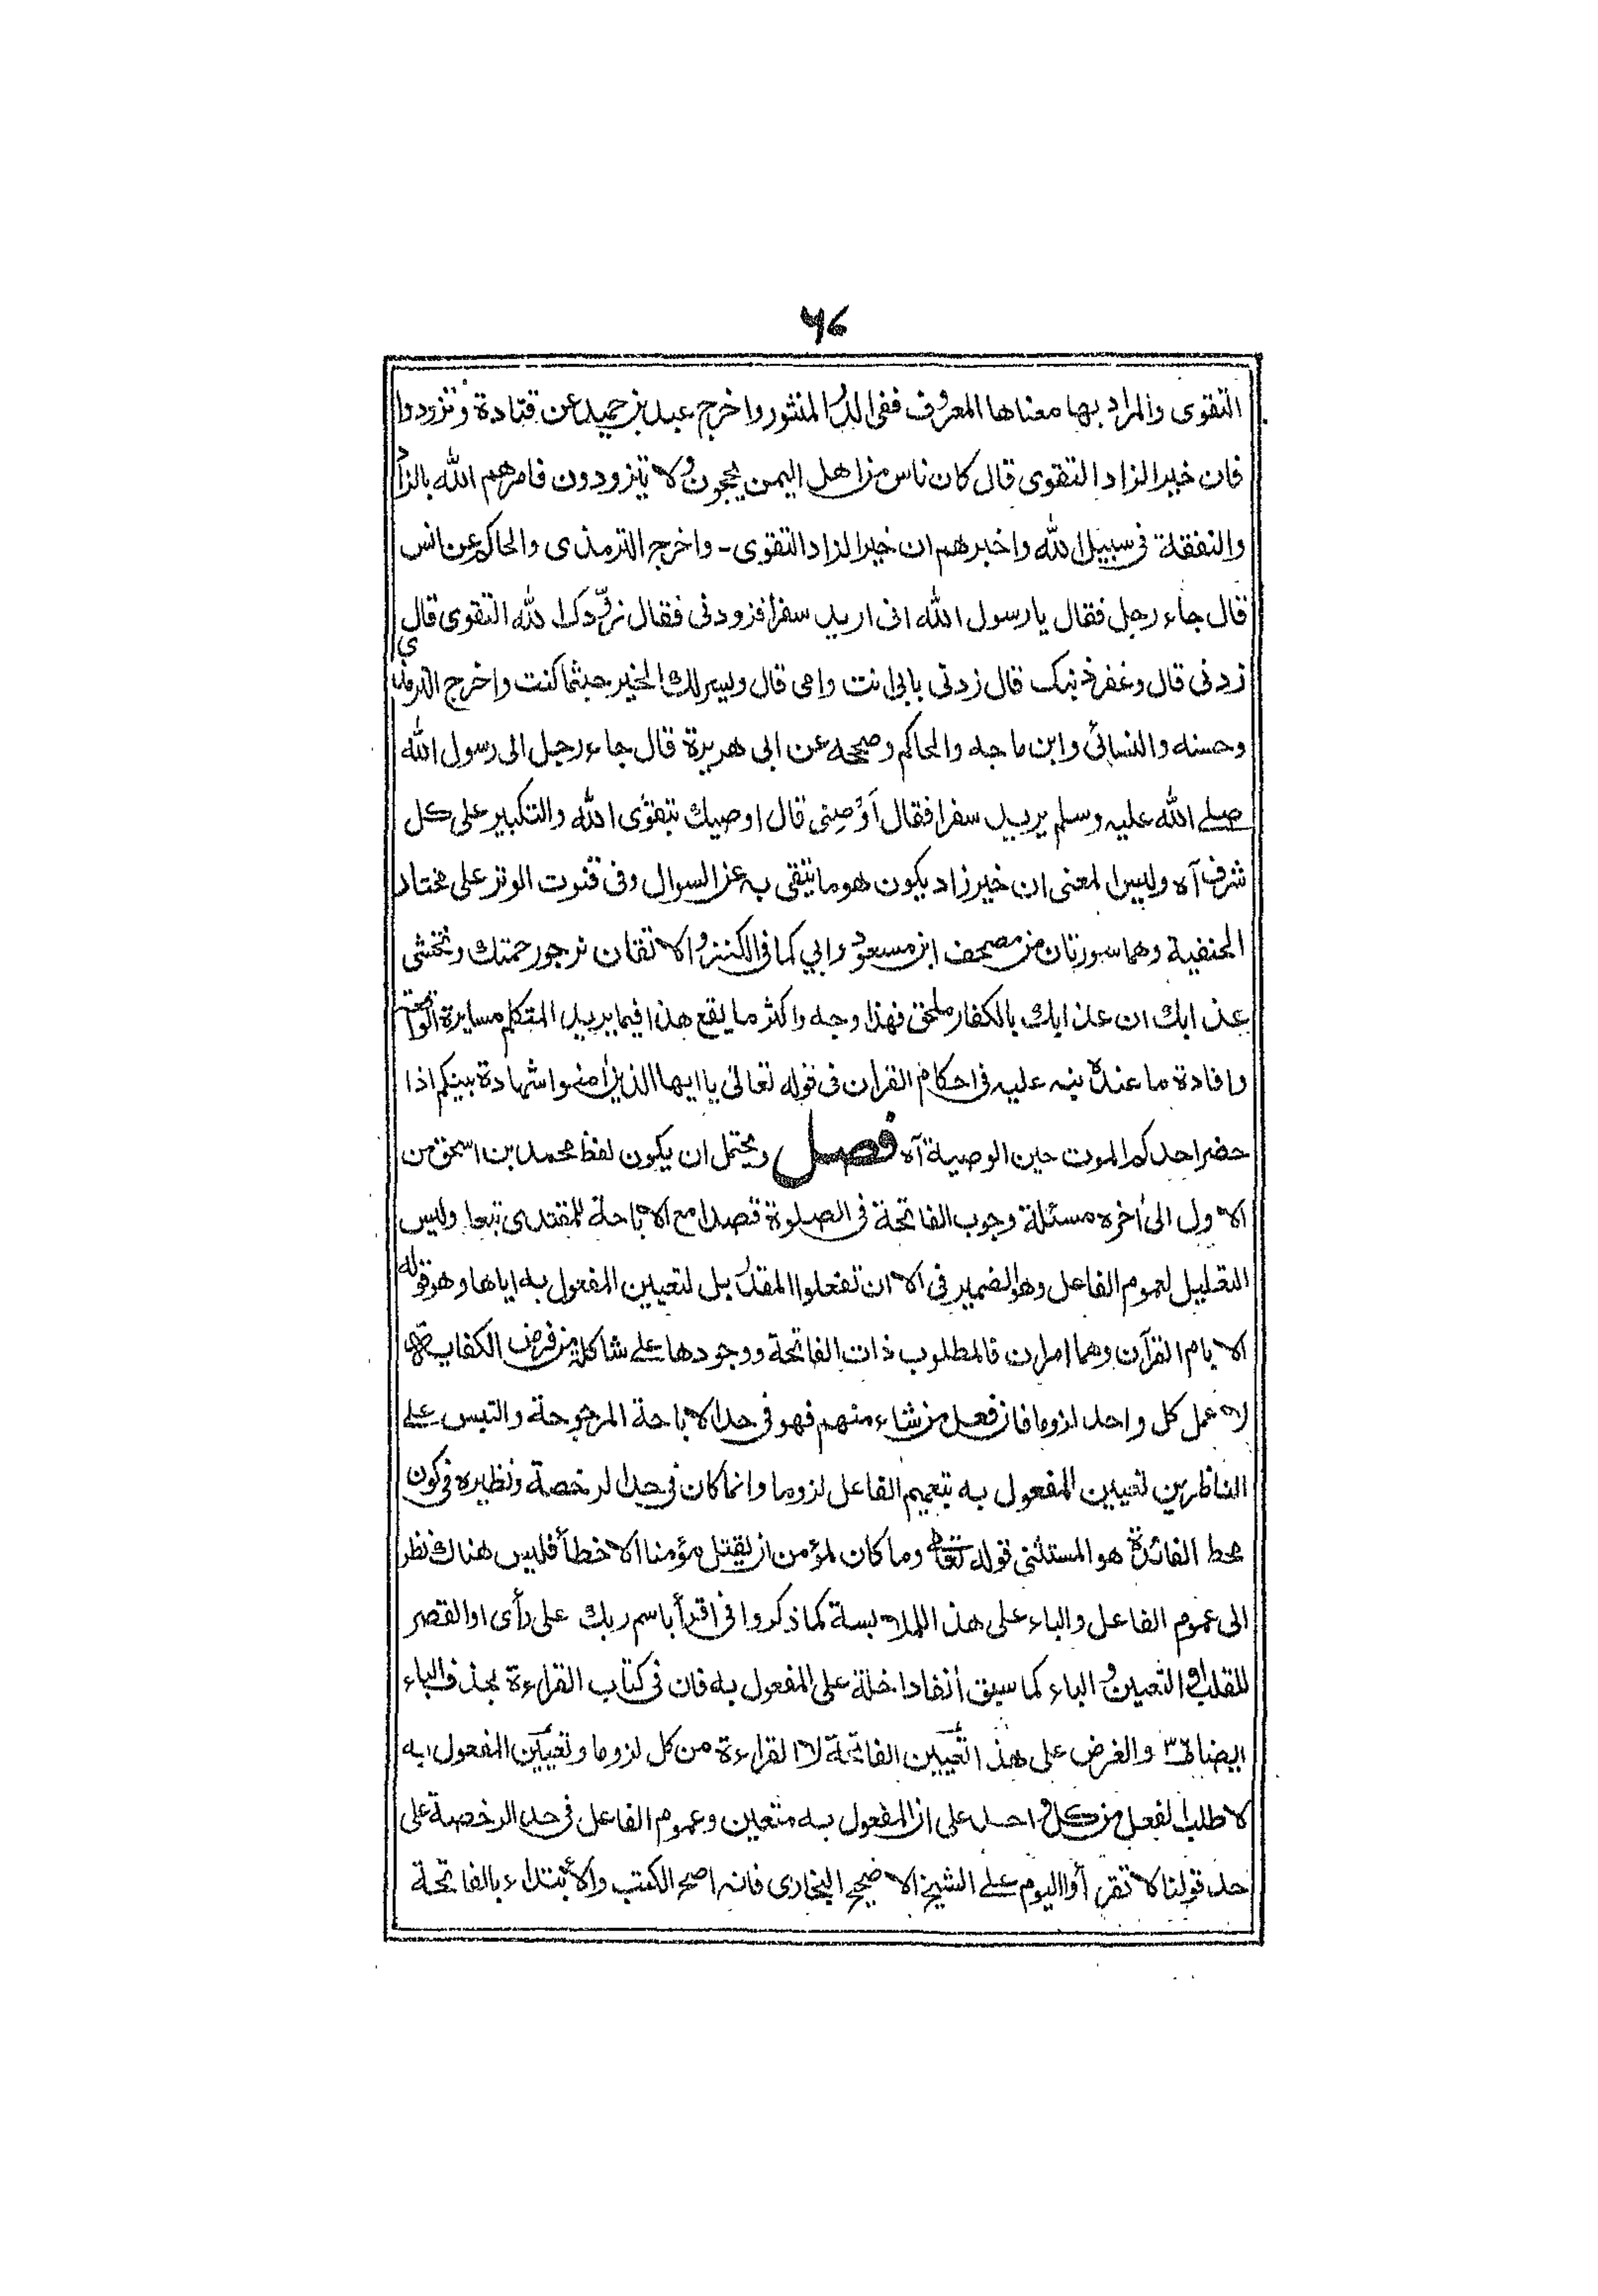 ٧٦
التقوى والمراد بها معناها المعروف ففى الدر المنثور واخرج عبد بن حميد عن قتادة وتزودوا
فان خير الزاد التقوى قال كان ناس من اهل اليمن يحجون ولا يتزودون فامرهم الله بالزاد
والنفقة فى سبيل الله واخبرهم ان خير الزاد التقوى - واخرج الترمذى والحاكم عن انس
قال جاء رجل فقال يا رسول الله انى اريد سفرا فزودنى فقال زودك الله التقوى قال
زدنى قال وغفر ذنبك قال زدنى بابى انت وامى قال ويسر لك الخير حيثما كنت واخرج الترمذى
وحسنه والنسائى وابن ماجه والحاكم وصححه عن ابى هريرة قال جاء رجل الى رسول الله
صلے الله عليه وسلم يريد سفرا فقال أَوْصِنِى قال اوصيك بتقوى الله والتكبير على كل
شرف آه وليس المعنى ان خير زاد يكون هو ما يتقى به عن السوال وفى قنوت الوتر على مختار
الحنفية وهما سورتان من مصحف ابن مسعود وابي كما فى الكنز والاتقان نرجو رحمتك ونخشى
عذابك ان عذابك بالكفار ملحق فهذا وجه واكثر ما يقع هذا فيما يريد المتكلم مسايرة الواقع
وافادة ما عنده نبه عليه فى احكام القران فى قوله تعالى يا ايها الذين اٰمنوا شهادة بينكم اذا
حضر احدكم الموت حين الوصية آه فصل ويحتمل ان يكون لفظ محمد بن اسحق من
الاول الى اٰخره مسئلة وجوب الفاتحة فى الصلوة قصدا مع الاباحة للمقتدى تبعا وليس
التعليل لعموم الفاعل وهو الضمير فى الا ان تفعلوا المقدر بل لتعيين المفعول به اياها وهو قوله
الا بام القرآن وهما امران فالمطلوب ذات الفاتحة ووجودها على شاكلة من فرض الكفاية
لا عمل كل واحد لزوما فان فعل من شاء منهم فهو فى حد الاباحة المرجوحة والتبس علے
الناظرين تعيين المفعول به بتعميم الفاعل لزوما وانما كان فى حد الرخصة ونظيره فى كون
محط الفائدة هو المستثنى قوله تعالى وما كان لمؤمن ان يقتل مؤمنا الا خطأ فليس هناك نظر
الى عموم الفاعل والباء على هذا للملابسة كما ذكروا فى اقرأ باسم ربك على رأى او القصر
للقلب او التعيين والباء كما سبق اٰنفا داخلة على المفعول به فان فى كتاب القراءة بحذف الباء
ايضا والغرض على هذا تعيين الفاتحة لا القراءة من كل لزوما وتعيين المفعول به
لا طلب الفعل من كل واحد على ان المفعول به متعين وعموم الفاعل فى حد الرخصة على
حد قولنا لا تقرأوا اليوم علے الشيخ الا صحيح البخارى فانه اصح الكتب والابتداء بالفاتحة